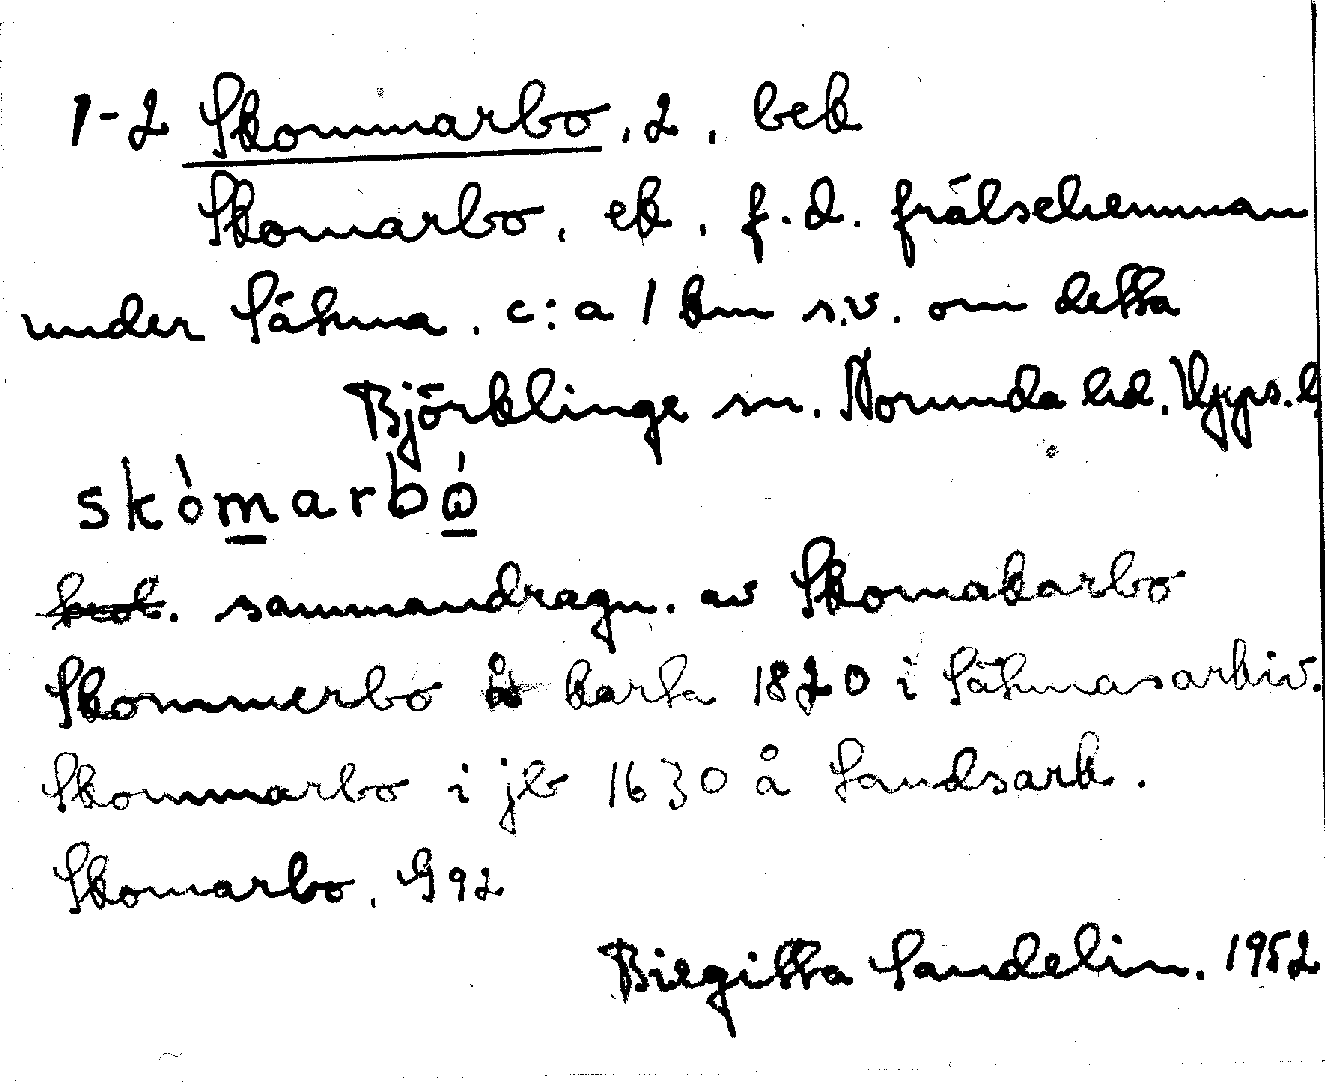 1-2 Skommarbo, 2, bek
Skomarbo, ek, f.d. frälsehemman
under Sätuna, c:a 1 km s.v. om detta
Björklinge sn. Norunda hd. Upps. l
skòmarbó
trol. sammandragn. av Skomakarbo
Skommerbo å karta 1820 i Sätunasarkiv.
Skommarbo i jb 1630 å Landsark.
Skomarbo, G 92
Birgitta Sandelin. 1952